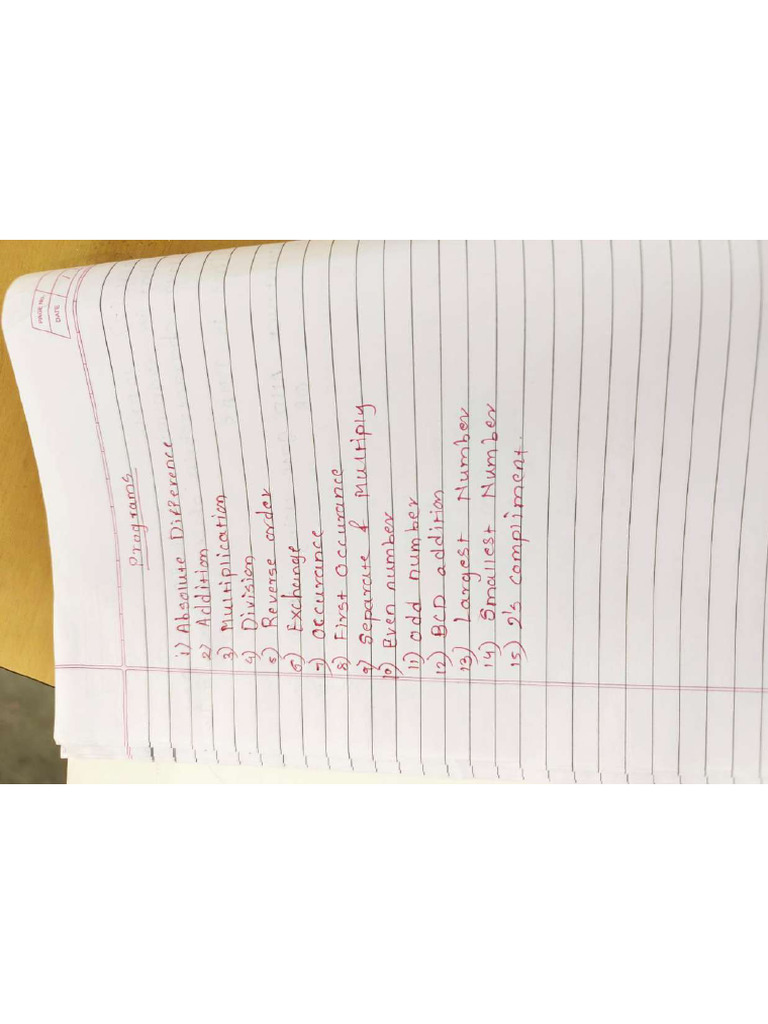 PAGE No.
DATE
Programs
1) Absolute Difference
2) Addition
3) Multiplication
4) Division
5) Reverse order
6) Exchange
7) Occurance
8) First Occurance
9) Separate & Multiply
10) Even number
11) odd number
12) BCD addition
13) Largest Number
14) Smallest Number
15) 2's compliment.